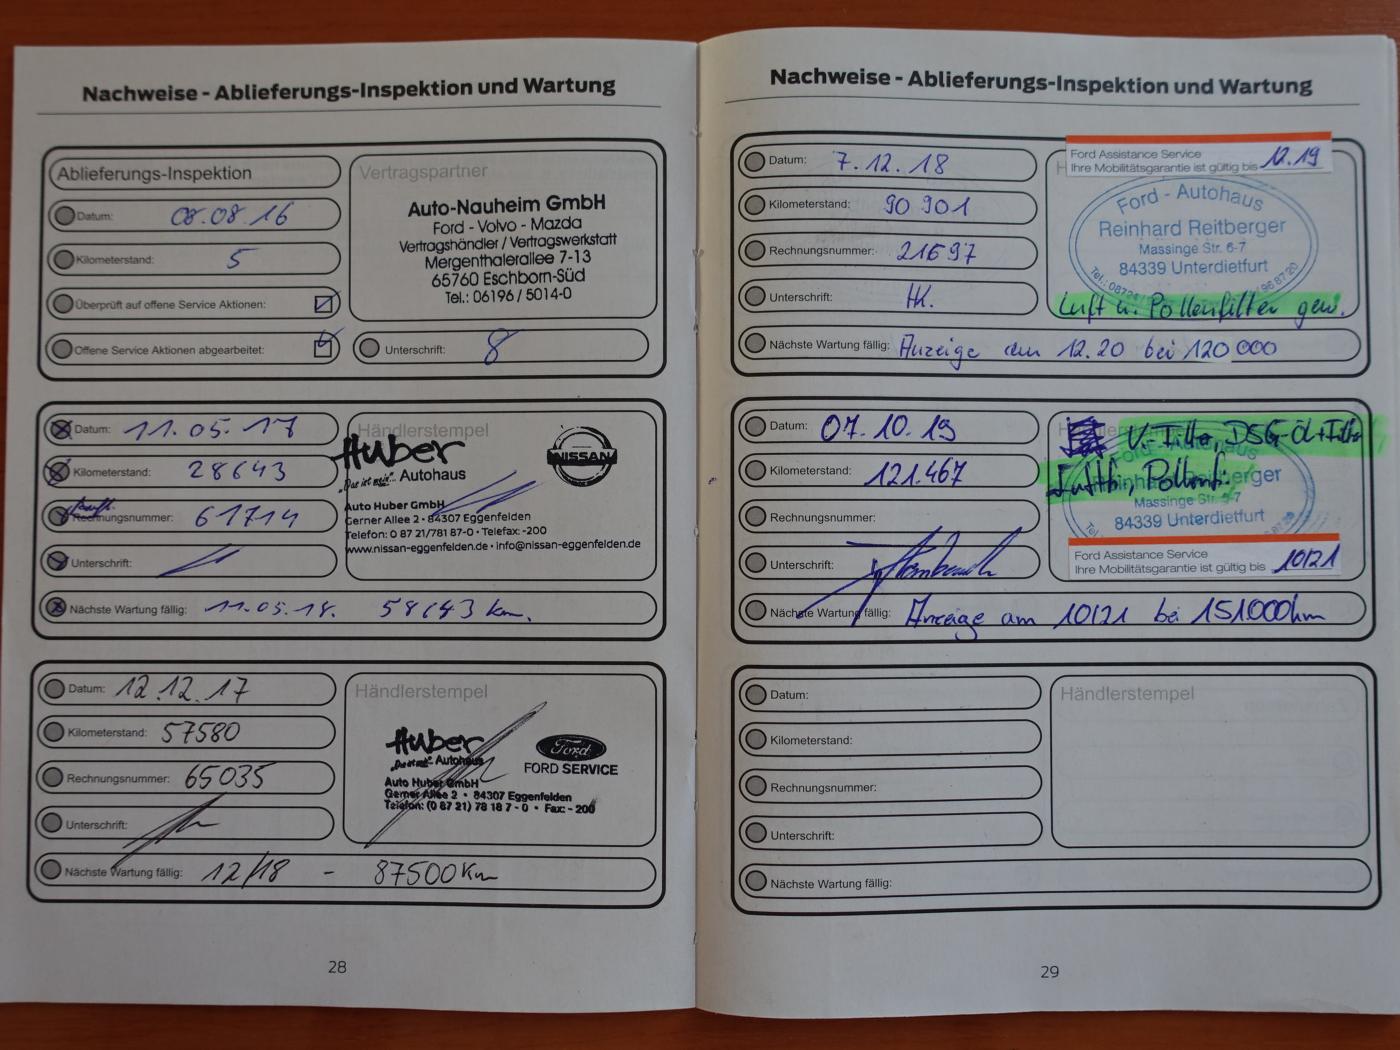 Nachweise - Ablieferungs-Inspektion und Wartung
Ablieferungs-Inspektion
Datum: 08.08.16
Kilometerstand: 5
Überprüft auf offene Service Aktionen:
Offene Service Aktionen abgearbeitet:
Vertragspartner
Auto-Nauheim GmbH
Ford - Volvo - Mazda
Vertragshändler / Vertragswerkstatt
Mergenthalerallee 7-13
65760 Eschborn-Süd
Tel.: 06196 / 5014-0
Unterschrift:
Datum: 11.05.17
Kilometerstand: 28643
Rechnungsnummer: 61714
Unterschrift:
Händlerstempel
Huber
"Das ist mein... Autohaus
NISSAN
Auto Huber GmbH
Gerner Allee 2 · 84307 Eggenfelden
Telefon: 0 87 21/781 87-0 · Telefax: -200
www.nissan-eggenfelden.de · info@nissan-eggenfelden.de
Nächste Wartung fällig: 11.05.18. 58643 km.
Datum: 12.12.17
Kilometerstand: 57580
Rechnungsnummer: 65035
Unterschrift:
Händlerstempel
Huber
Autohaus
Ford
FORD SERVICE
Auto Huber GmbH
Gerner Allee 2 • 84307 Eggenfelden
Telefon: (0 87 21) 78 18 7 - 0 • Fax: - 200
Nächste Wartung fällig: 12/18 - 87500 Km
28
Nachweise - Ablieferungs-Inspektion und Wartung
Datum: 7.12.18
Kilometerstand: 90 901
Rechnungsnummer: 21697
Unterschrift: HK.
Ford Assistance Service
Ihre Mobilitätsgarantie ist gültig bis 12.19
Ford - Autohaus
Reinhard Reitberger
Massinge Str. 6-7
84339 Unterdietfurt
Luft u. Pollenfilter gew.
Nächste Wartung fällig: Anzeige am 12.20 bei 120 000
Datum: 07.10.19
Kilometerstand: 121.467
Rechnungsnummer:
Unterschrift:
DSG-Öl+Filter
Luftfi, Pollenf.
Reitberger
Massinge Str. 6-7
84339 Unterdietfurt
Ford Assistance Service
Ihre Mobilitätsgarantie ist gültig bis 10/21
Nächste Wartung fällig: Anzeige am 10/21 bei 151.000km
Datum:
Kilometerstand:
Rechnungsnummer:
Unterschrift:
Händlerstempel
Nächste Wartung fällig:
29